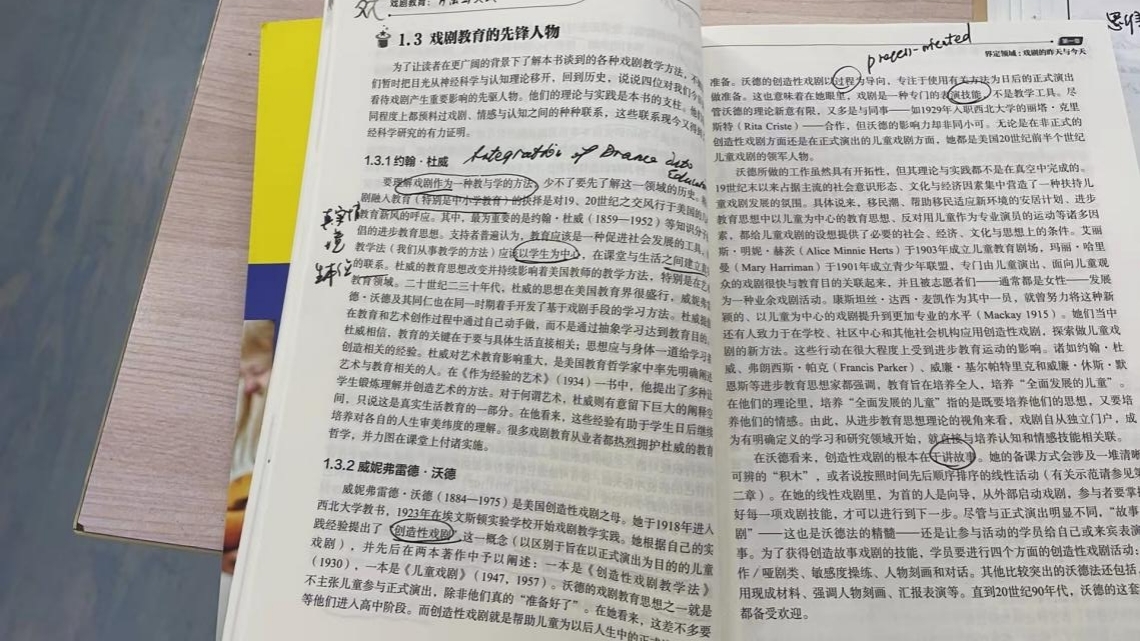 戏剧教育：
1.3 戏剧教育的先锋人物
为了让读者在更广阔的背景下了解本书谈到的各种戏剧教学方法，
们暂时把目光从神经科学与认知理论移开，回到历史，说说四位对我们今
看待戏剧产生重要影响的先驱人物。他们的理论与实践是本书的支柱。
同程度上都预料过戏剧、情感与认知之间的种种联系，这些联系现今又得
经科学研究的有力证明。
1.3.1 约翰·杜威
Integration of Drama into
Education
要理解戏剧作为一种教与学的方法，少不了要先了解这一领域的历史。
剧融入教育（特别是中小学教育）的抉择是对19、20世纪之交风行于美国的
教育新风的呼应。其中，最为重要的是约翰·杜威（1859—1952）等知识分子
倡的进步教育思想。支持者普遍认为，教育应该是一种促进社会发展的工具。
教学法（我们从事教学的方法）应该以学生为中心，在课堂与生活之间建立
的联系。杜威的教育思想改变并持续影响着美国教师的教学方法，特别是在艺
教育领域。二十世纪二三十年代，杜威的思想在美国教育界很盛行，威妮弗
德·沃德及其同仁也在同一时期着手开发了基于戏剧手段的学习方法。杜威提倡
在教育和艺术创作过程中通过自己动手做，而不是通过抽象学习达到教育目的。
杜威相信，教育的关键在于要与具体生活直接相关；思想应与身体一道给学习
创造相关的经验。杜威对艺术教育影响重大，是美国教育哲学家中率先明确阐述
艺术与教育相关的人。在《作为经验的艺术》（1934）一书中，他提出了多种让
学生锻炼理解并创造艺术的方法。对于何谓艺术，杜威则有意留下巨大的阐释空
间，只说这是真实生活教育的一部分。在他看来，这些经验有助于学生日后继续
培养对各自的人生审美纬度的理解。很多戏剧教育从业者都热烈拥护杜威的教育
哲学，并力图在课堂上付诸实施。
1.3.2 威妮弗雷德·沃德
威妮弗雷德·沃德（1884—1975）是美国创造性戏剧之母。她于1918年进入
西北大学教书，1923年在埃文斯顿实验学校开始戏剧教学实践。她根据自己的实
践经验提出了“创造性戏剧”这一概念（以区别于旨在以正式演出为目的的儿童
戏剧），并先后在两本著作中予以阐述：一本是《创造性戏剧教学法》
（1930），一本是《儿童戏剧》（1947，1957）。沃德的戏剧教育思想之一就是
不主张儿童参与正式演出，除非他们真的“准备好了”。在她看来，这差不多要
等他们进入高中阶段。而创造性戏剧就是帮助儿童为以后人生中的正式
process-oriented
第一章
界定领域：戏剧的昨天与今天
准备。沃德的创造性戏剧以过程为导向，专注于使用有关方法为日后的正式演出
做准备。这也意味着在她眼里，戏剧是一种专门的表演技能，不是教学工具。尽
管沃德的理论新意有限，又多是与同事——如1929年入职西北大学的丽塔·克里
斯特（Rita Criste）——合作，但沃德的影响力却非同小可。无论是在非正式的
创造性戏剧方面还是在正式演出的儿童戏剧方面，她都是美国20世纪前半个世纪
儿童戏剧的领军人物。
沃德所做的工作虽然具有开拓性，但其理论与实践都不是在真空中完成的。
19世纪末以来占据主流的社会意识形态、文化与经济因素集中营造了一种扶持儿
童戏剧发展的氛围。具体说来，移民潮、帮助移民适应新环境的安居计划、进步
教育思想中以儿童为中心的教育思想、反对用儿童作为专业演员的运动等诸多因
素，都给儿童戏剧的设想提供了必要的社会、经济、文化与思想上的条件。艾丽
斯·明妮·赫茨（Alice Minnie Herts）于1903年成立儿童教育剧场，玛丽·哈里
曼（Mary Harriman）于1901年成立青少年联盟，专门由儿童演出、面向儿童观
众的戏剧很快与教育目的关联起来，并且被志愿者们——通常都是女性——发展
为一种业余戏剧活动。康斯坦丝·达西·麦凯作为其中一员，就曾努力将这种新
颖的、以儿童为中心的戏剧提升到更加专业的水平（Mackay 1915）。她们当中
还有人致力于在学校、社区中心和其他社会机构应用创造性戏剧，探索做儿童戏
剧的新方法。这些行动在很大程度上受到进步教育运动的影响。诸如约翰·杜
威、弗朗西斯·帕克（Francis Parker）、威廉·基尔帕特里克和威廉·休斯·默
恩斯等进步教育思想家都强调，教育旨在培养全人，培养“全面发展的儿童”。
在他们的理论里，培养“全面发展的儿童”指的是既要培养他们的思想，又要培
养他们的情感。由此，从进步教育思想理论的视角来看，戏剧自从独立门户，成
为有明确定义的学习和研究领域开始，就直接与培养认知和情感技能相关联。
在沃德看来，创造性戏剧的根本在于讲故事。她的备课方式会涉及一堆清晰
可辨的“积木”，或者说按照时间先后顺序排序的线性活动（有关示范请参见第
二章）。在她的线性戏剧里，为首的人是向导，从外部启动戏剧，参与者要掌握
好每一项戏剧技能，才可以进行到下一步。尽管与正式演出明显不同，“故事
剧”——这也是沃德法的精髓——还是让参与活动的学员给自己或来宾表演
事。为了获得创造故事戏剧的技能，学员要进行四个方面的创造性戏剧活动：
作/哑剧类、敏感度操练、人物刻画和对话。其他比较突出的沃德法还包括
用现成材料、强调人物刻画、汇报表演等。直到20世纪90年代，沃德的这套
都备受欢迎。